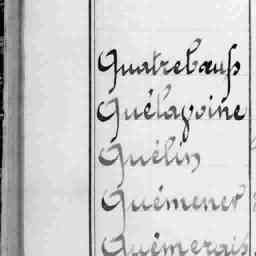 Quatrebœufs
Quélavoine
Quélin
Quémener
Quémerais